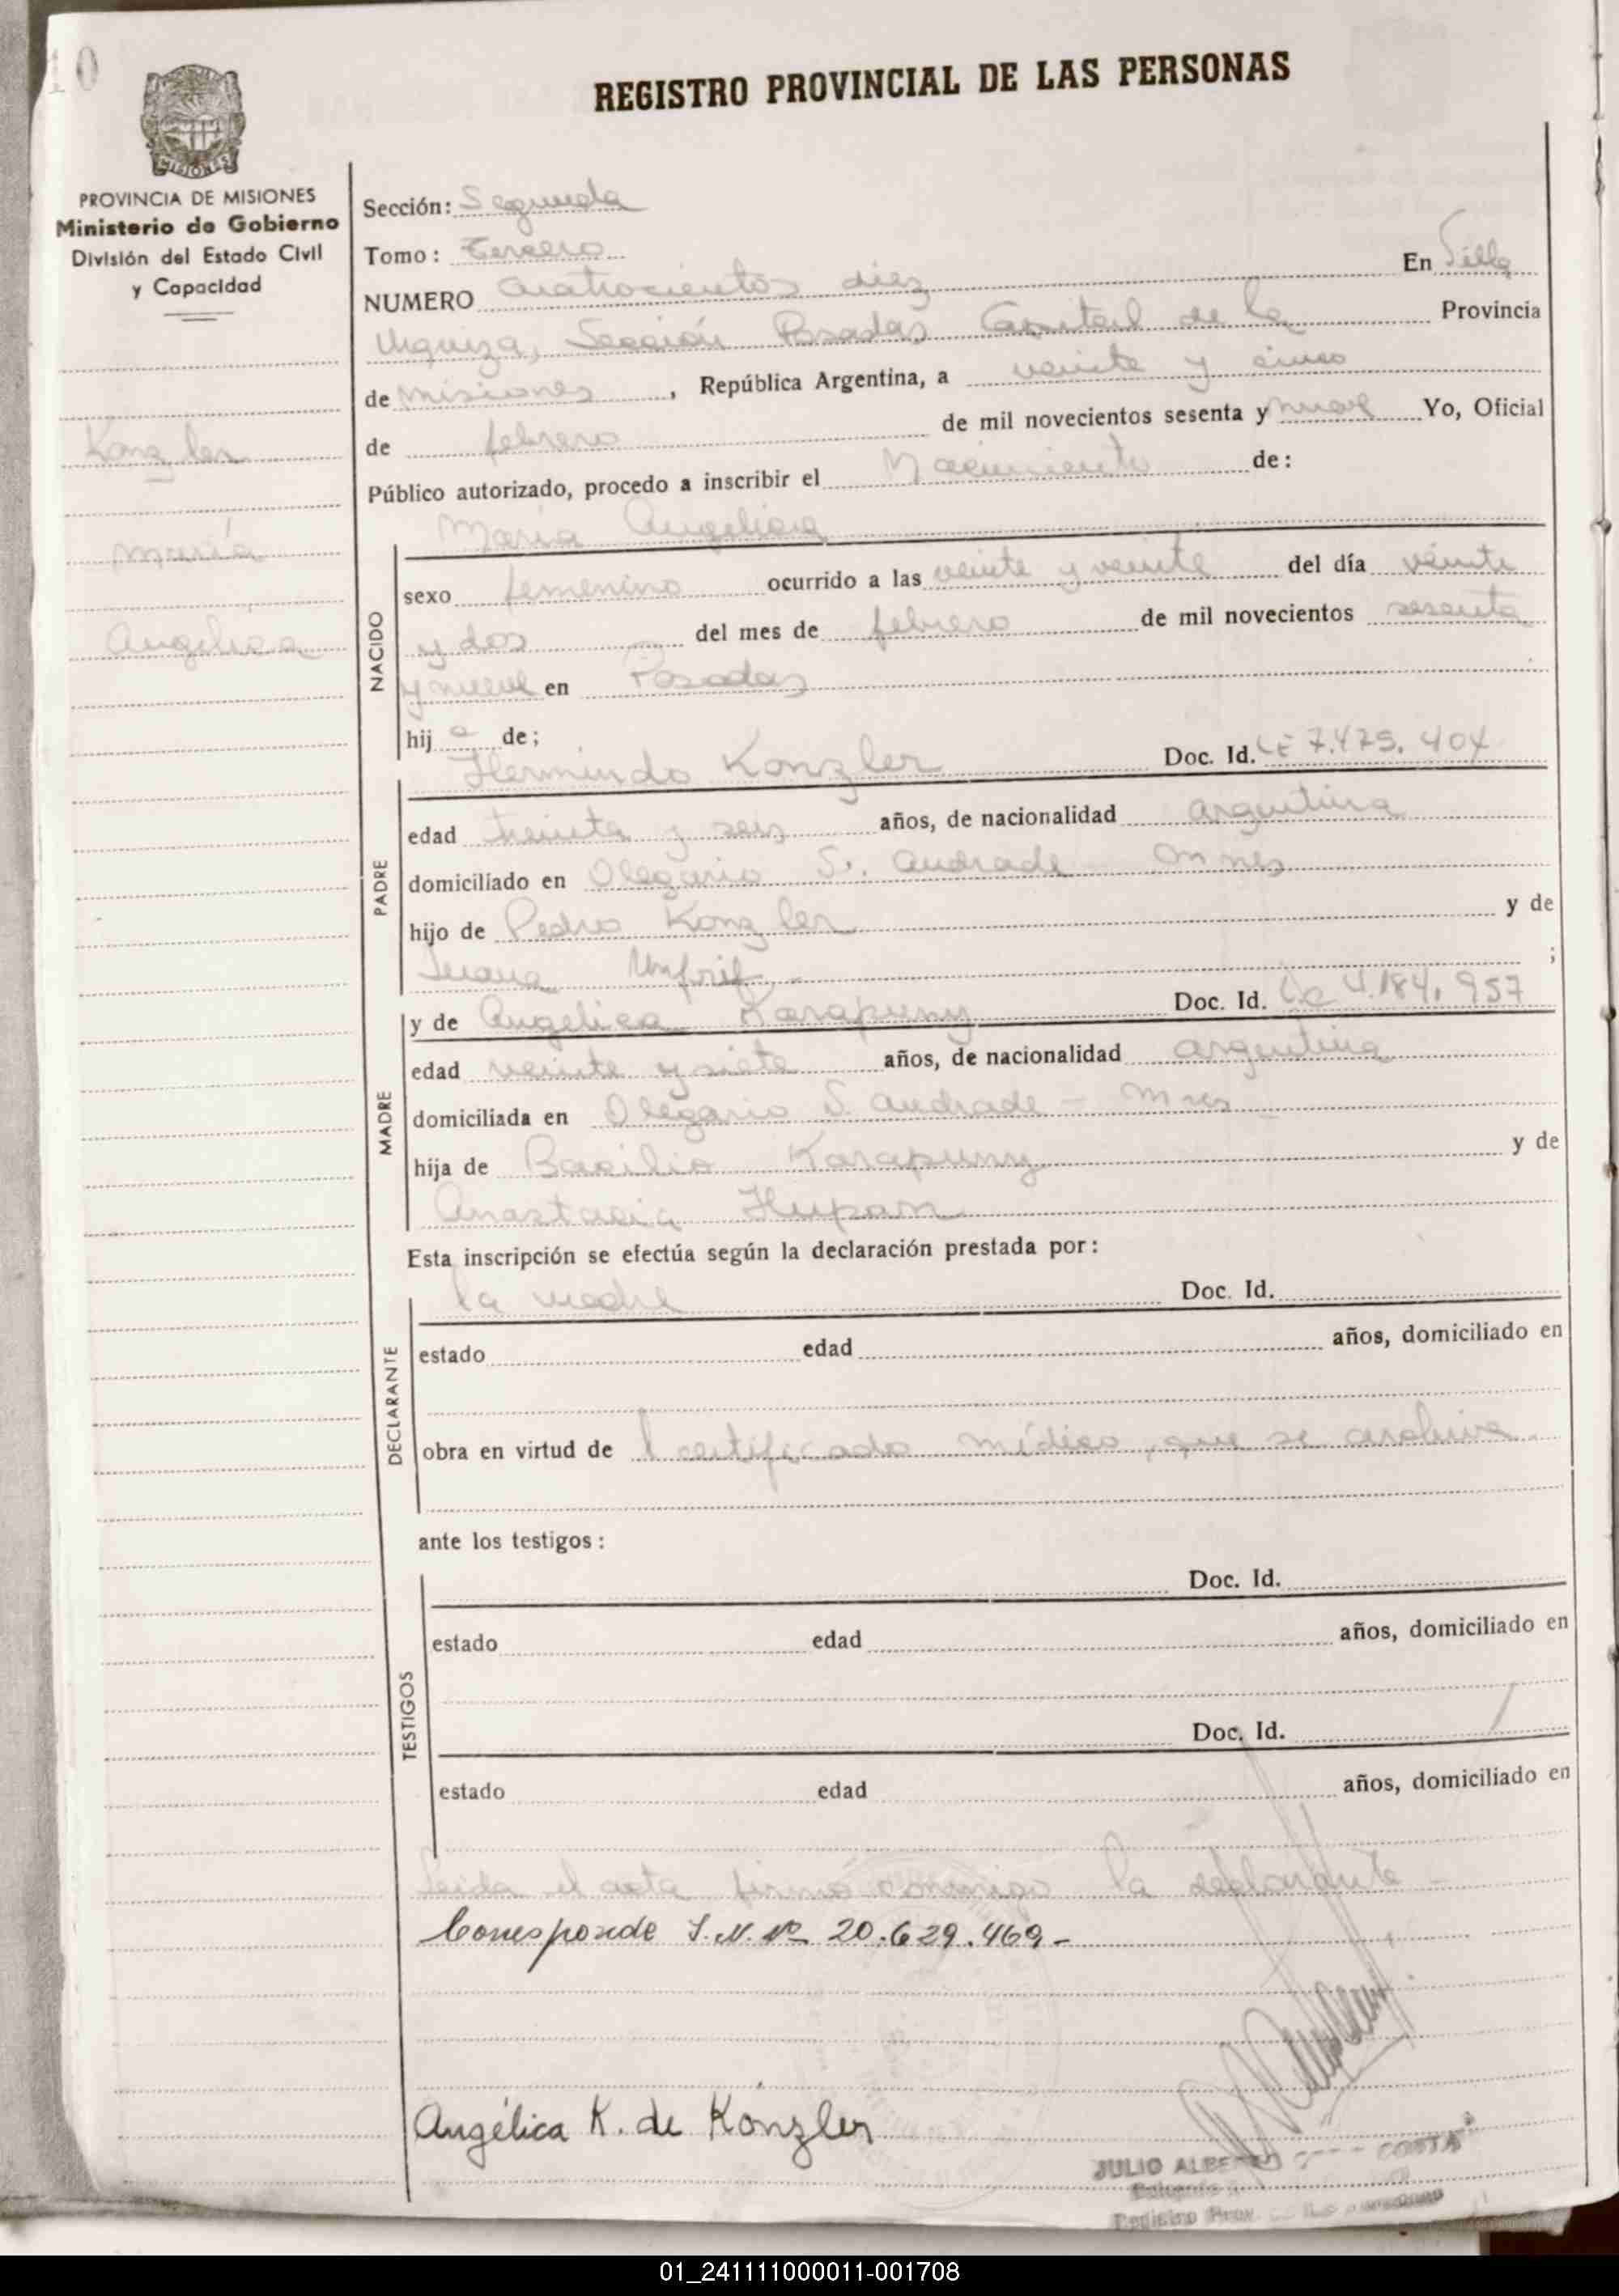 10
REGISTRO PROVINCIAL DE LAS PERSONAS
MISIONES
PROVINCIA DE MISIONES
Ministerio de Gobierno
División del Estado Civil
y Capacidad
Konzler
María
Angelica
Sección: Segunda
Tomo: Tercero
NUMERO cuatrocientos diez En Villa
Urquiza, Sección Posadas Capital de la Provincia
de Misiones, República Argentina, a veinte y cinco
de febrero de mil novecientos sesenta y nueve Yo, Oficial
Público autorizado, procedo a inscribir el Nacimiento de:
María Angelica
NACIDO
sexo femenino ocurrido a las veinte y veinte del día veinte
y dos del mes de febrero de mil novecientos sesenta
y nueve en Posadas
hij a de;
Hermindo Konzler Doc. Id. LE 7.475.404
PADRE
edad treinta y seis años, de nacionalidad argentina
domiciliado en Olegario S. Andrade
hijo de Pedro Konzler y de
Juana ;
y de Angelica Karapuny Doc. Id. 4.184.957
MADRE
edad veinte y siete años, de nacionalidad argentina
domiciliada en Olegario S. Andrade - Mnes
hija de Basilio Karapuny y de
Anastacia Hupan
Esta inscripción se efectúa según la declaración prestada por:
la madre Doc. Id.
DECLARANTE
estado edad años, domiciliado en
obra en virtud de l certificado médico, que se archiva.
ante los testigos:
Doc. Id.
TESTIGOS
estado edad años, domiciliado en
Doc. Id.
estado edad años, domiciliado en
Leida el acta firmó conmigo la declarante -
Corresponde I.N. Nº 20.629.469-
Angélica K. de Konzler
JULIO ALBERTO COSTA
Registro Prov. de las personas
01_241111000011-001708